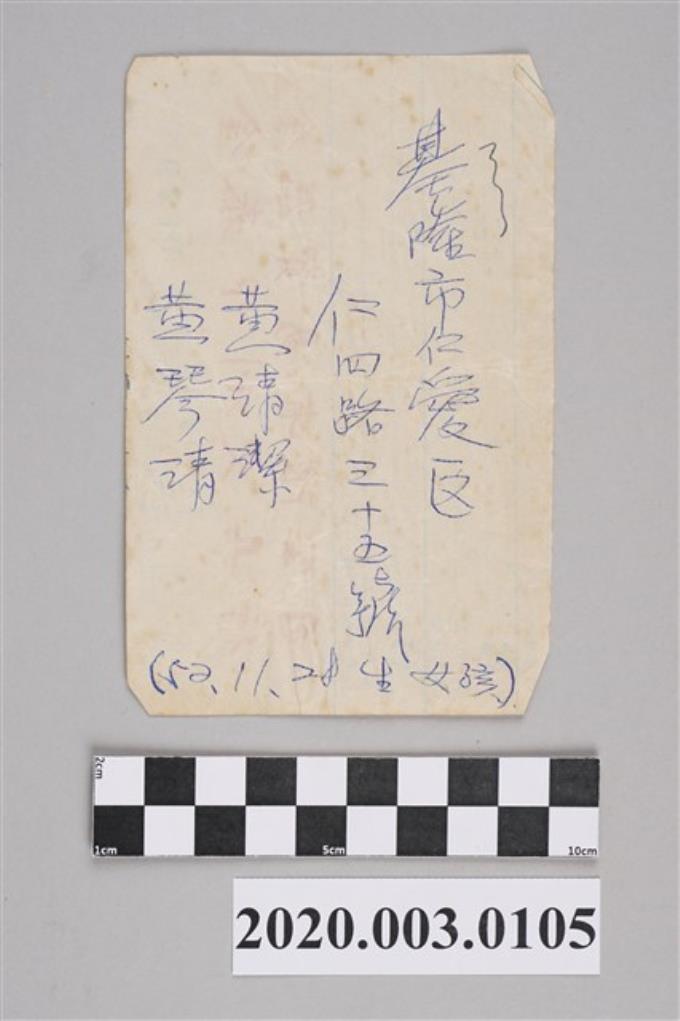 基隆市仁愛区
仁四路三十五號
黃靖潔
黃琴靖
(52.11.28生女孩)
2cm
1cm 5cm 10cm
2020.003.0105